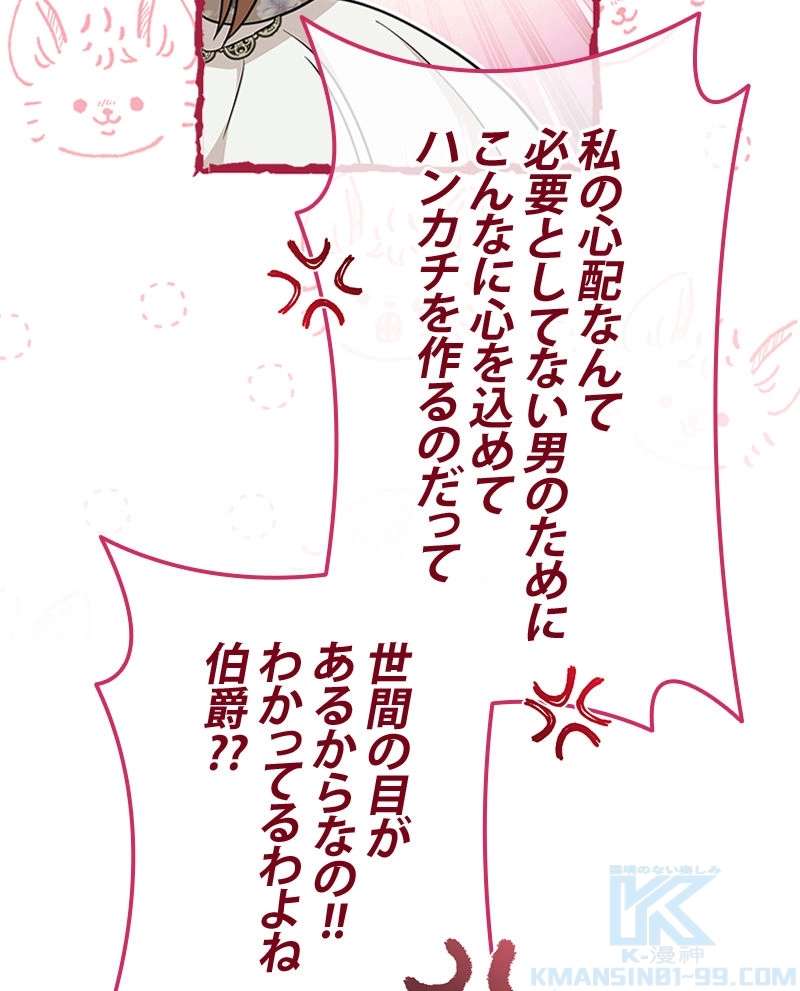 私の心配なんて
必要としてない男のために
こんなに心を込めて
ハンカチを作るのだって
世間の目が
あるからなの!!
わかってるわよね
伯爵??
K
K-漫神
KMANSIN01-99.COM